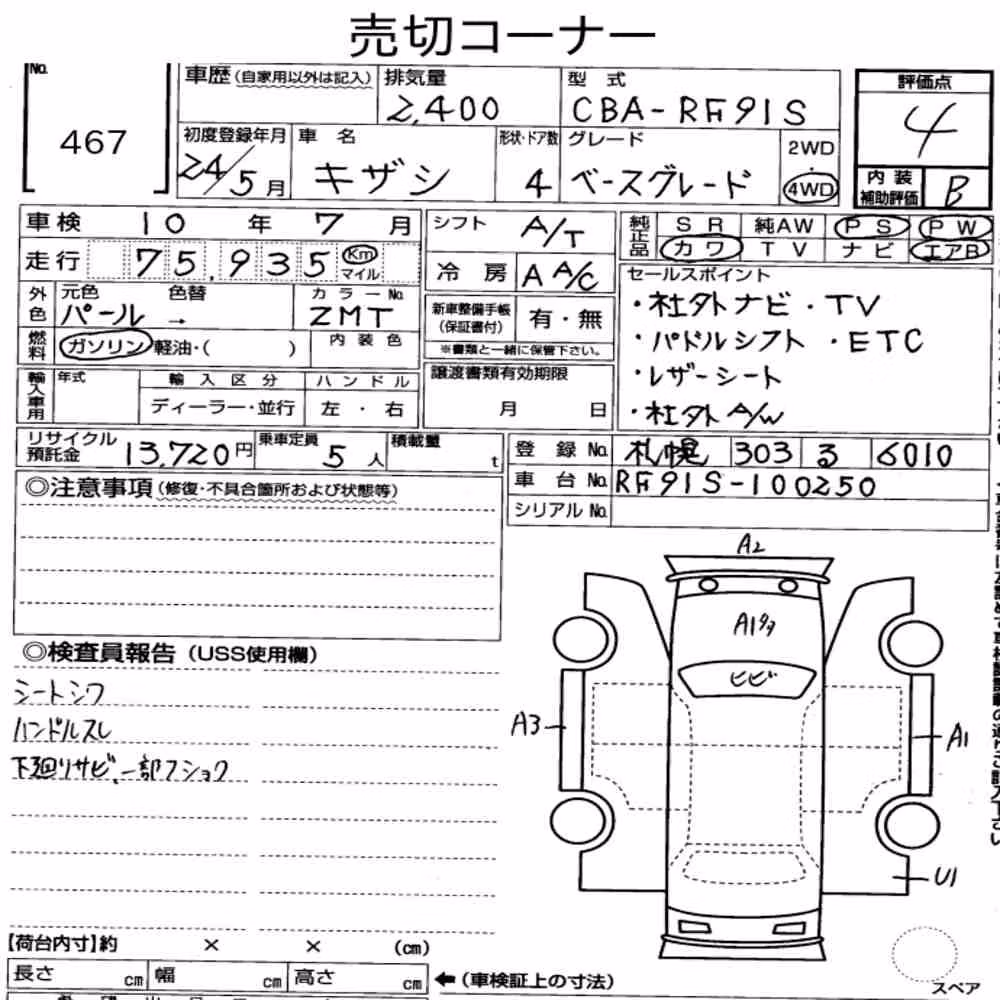 売切コーナー
No. 467
車歴(自家用以外は記入) 排気量 2,400 型式 CBA-RF91S 評価点 4
初度登録年月 24/5月 車名 キザシ 形状・ドア数 4 グレード ベースグレード 2WD 4WD
内装補助評価 B
車検 10年 7月 シフト A/T 純正品 SR 純AW PS PW
走行 75,935 Km マイル 冷房 A A/C カワ TV ナビ エアB
外色 元色 パール 色替 → カラーNo. ZMT 新車整備手帳(保証書付) 有・無
燃料 ガソリン 軽油・( ) 内装色 ※書類と一緒に保管下さい。
セールスポイント
・社外ナビ・TV
・パドルシフト ・ETC
・レザーシート
・社外A/W
輸入車用 年式 輸入区分 ディーラー・並行 ハンドル 左・右 譲渡書類有効期限 月 日
リサイクル預託金 13,720円 乗車定員 5人 積載量 t
登録No. 札幌 303 る 6010
車台No. RF91S-100250
シリアルNo.
◎注意事項(修復・不具合箇所および状態等)
◎検査員報告(USS使用欄)
シートシワ
ハンドルスレ
下廻りサビ、一部フショク
A2
A1
ヒビ
A3
A1
U1
【荷台内寸】約 × × (cm)
長さ cm 幅 cm 高さ cm ←(車検証上の寸法)
スペア